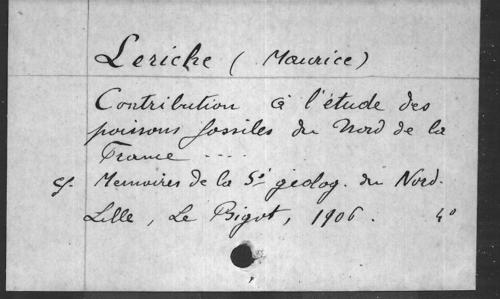 Leriche (Maurice)
Contribution à l'étude des
poissons fossiles du Nord de la
France ....
cf. Memoires de la Sé géolog. du Nord.
Lille, Le Bigot, 1906. 4°